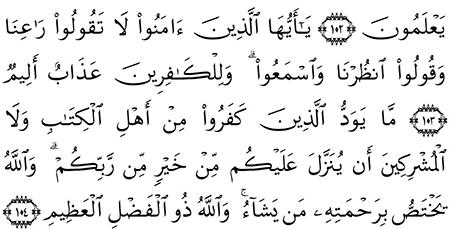 يَعْلَمُونَ ﴿١٠٢﴾ يَـٰٓأَيُّهَا ٱلَّذِينَ ءَامَنُوا۟ لَا تَقُولُوا۟ رَٰعِنَا
وَقُولُوا۟ ٱنظُرْنَا وَٱسْمَعُوا۟ ۗ وَلِلْكَـٰفِرِينَ عَذَابٌ أَلِيمٌ
﴿١٠٣﴾ مَّا يَوَدُّ ٱلَّذِينَ كَفَرُوا۟ مِنْ أَهْلِ ٱلْكِتَـٰبِ وَلَا
ٱلْمُشْرِكِينَ أَن يُنَزَّلَ عَلَيْكُم مِّنْ خَيْرٍ مِّن رَّبِّكُمْ ۗ وَٱللَّهُ
يَخْتَصُّ بِرَحْمَتِهِۦ مَن يَشَآءُ ۚ وَٱللَّهُ ذُو ٱلْفَضْلِ ٱلْعَظِيمِ ﴿١٠٤﴾